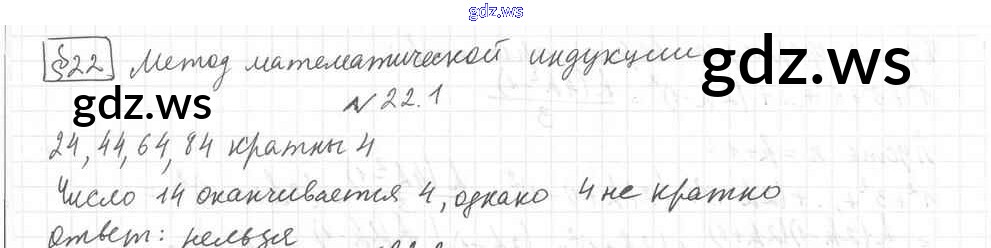 gdz.ws
§22 Метод математической индукции
gdz.ws
gdz.ws
№22.1
24, 44, 64, 84 кратны 4
Число 14 оканчивается 4, однако 4 не кратно
Ответ: нельзя